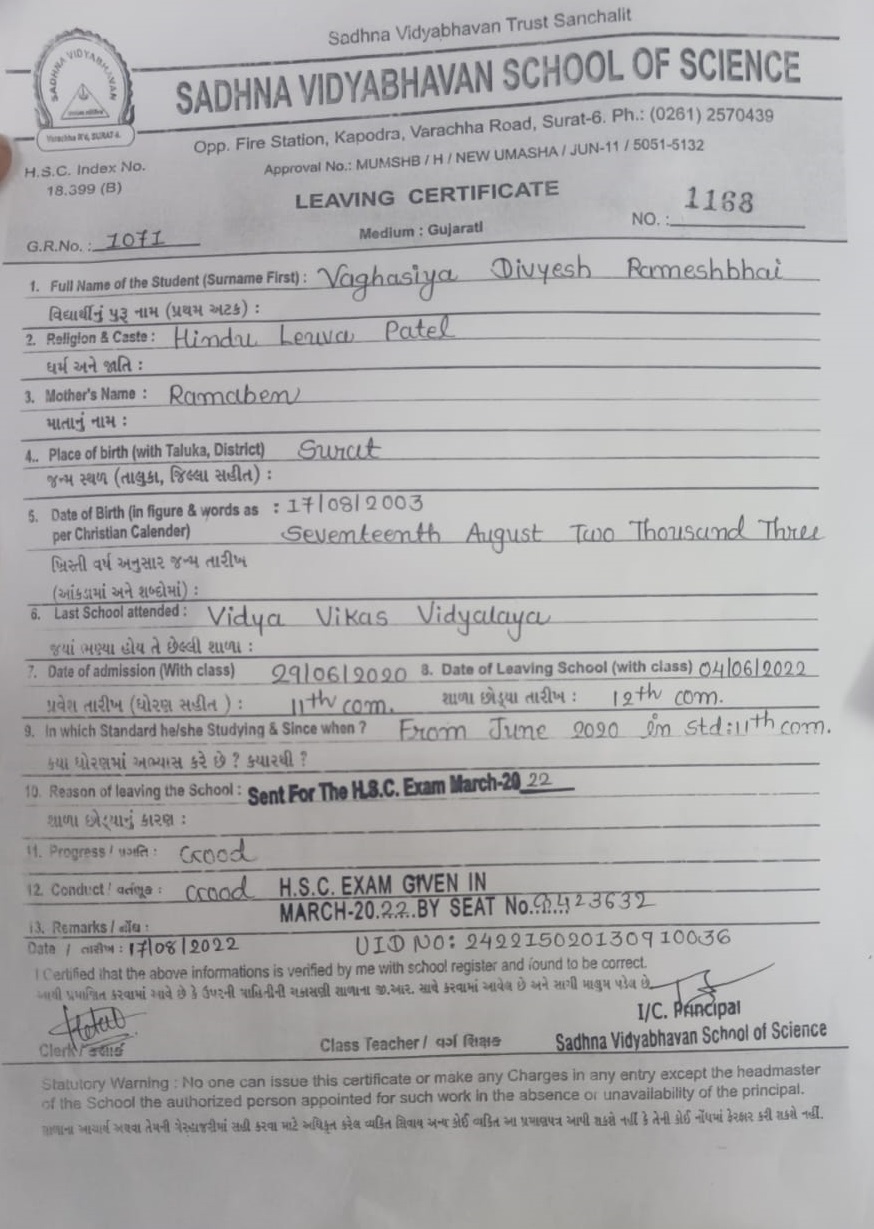 Sadhna Vidyabhavan Trust Sanchalit
SADHNA VIDYABHAVAN
Varachha Rd, SURAT-6.
SADHNA VIDYABHAVAN SCHOOL OF SCIENCE
Opp. Fire Station, Kapodra, Varachha Road, Surat-6. Ph.: (0261) 2570439
H.S.C. Index No.
18.399 (B)
Approval No.: MUMSHB / H / NEW UMASHA / JUN-11 / 5051-5132
LEAVING CERTIFICATE
G.R.No. : 1071
Medium : Gujarati
NO. : 1168
1. Full Name of the Student (Surname First) : Vaghasiya Divyesh Rameshbhai
વિદ્યાર્થીનું પુરૂ નામ (પ્રથમ અટક) :
2. Religion & Caste : Hindu Leuva Patel
ધર્મ અને જાતિ :
3. Mother's Name : Ramaben
માતાનું નામ :
4.. Place of birth (with Taluka, District) Surat
જન્મ સ્થળ (તાલુકા, જિલ્લા સહીત) :
5. Date of Birth (in figure & words as : 17/08/2003
per Christian Calender) Seventeenth August Two Thousand Three
ખ્રિસ્તી વર્ષ અનુસાર જન્મ તારીખ
(આંકડામાં અને શબ્દોમાં) :
6. Last School attended : Vidya Vikas Vidyalaya
જયાં ભણ્યા હોય તે છેલ્લી શાળા :
7. Date of admission (With class) 29/06/2020 8. Date of Leaving School (with class) 04/06/2022
પ્રવેશ તારીખ (ધોરણ સહીત ) : 11th com. શાળા છોડ્યા તારીખ : 12th com.
9. In which Standard he/she Studying & Since when ? From June 2020 in std:11th com.
કયા ધોરણમાં અભ્યાસ કરે છે ? ક્યારથી ?
10. Reason of leaving the School : Sent For The H.S.C. Exam March-20 22
શાળા છોડ્યાનું કારણ :
11. Progress / પ્રગતિ : Good
12. Conduct / વર્તણૂક : Good H.S.C. EXAM GIVEN IN
MARCH-20.22.BY SEAT No. 423632
13. Remarks / નોંધ :
Date / તારીખ : 17/08/2022 UID NO: 242215020130910036
I Certified that the above informations is verified by me with school register and found to be correct.
આથી પ્રમાણિત કરવામાં આવે છે કે ઉપરની માહિતીની ચકાસણી શાળાના જી.આર. સાથે કરવામાં આવેલ છે અને સાચી માલુમ પડેલ છે.
I/C. Principal
Clerk / ક્લાર્ક Class Teacher / વર્ગ શિક્ષક Sadhna Vidyabhavan School of Science
Statutory Warning : No one can issue this certificate or make any Charges in any entry except the headmaster
of the School the authorized person appointed for such work in the absence or unavailability of the principal.
શાળાના આચાર્ય અથવા તેમની ગેરહાજરીમાં સહી કરવા માટે અધિકૃત કરેલ વ્યક્તિ સિવાય અન્ય કોઈ વ્યક્તિ આ પ્રમાણપત્ર આપી શકશે નહીં કે તેની કોઈ નોંધમાં ફેરફાર કરી શકશે નહીં.